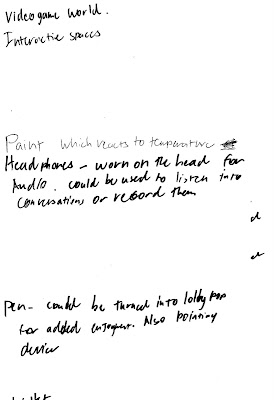 Videogame world.
Interactie spaces
Paint which reacts to temperature
Headphones - worn on the head for
Audio. could be used to listen into
conversations or record them
Pen - could be turned into lollypop
for added enjoyment. Also pointing
device